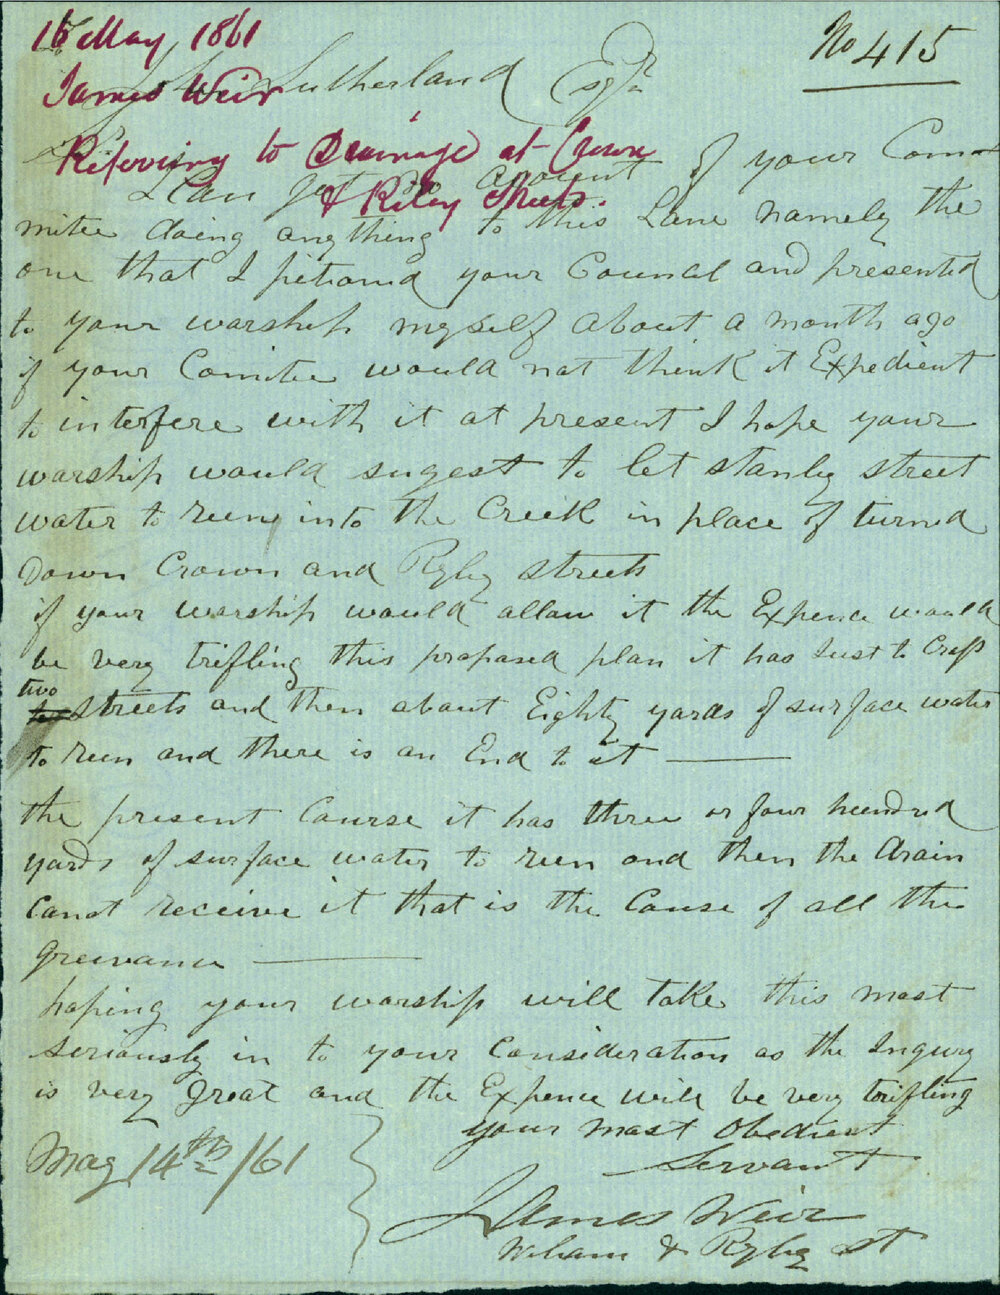 16 May, 1861
No 415
James Weir
Sutherland Esqr
Referring to Drainage at Crown
& Riley Streets.
I Can get no acount of your Com
mitee doing anything to this Lane namely the
one that I petiond your Council and presented
to your warship myself about a month ago
if your Comitee would not think it Expedient
to interfere with it at present I hope your
warship would sugest to let stanly street
water to run into the Creek in place of turned
Down Crown and Ryley streets
if your warship would allow it the Expence would
be very trifling this proposed plan it has Just to Cross
two streets and then about Eighty yards of surface water
to run and there is an End to it
the present Course it has three or four hundred
yards of surface water to run and then the drain
Canot receive it that is the Cause of all the
greevance
hoping your warship will take this most
seriously in to your Consideration as the Ingury
is very great and the Expence will be very trifling
your most Obedient
Servant
May 14th/61
James Weir
& Ryley st